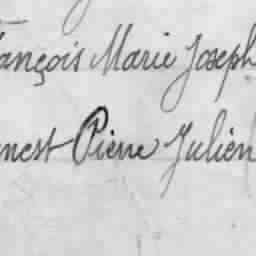 ançois Marie Joseph
nest Pierre Julien